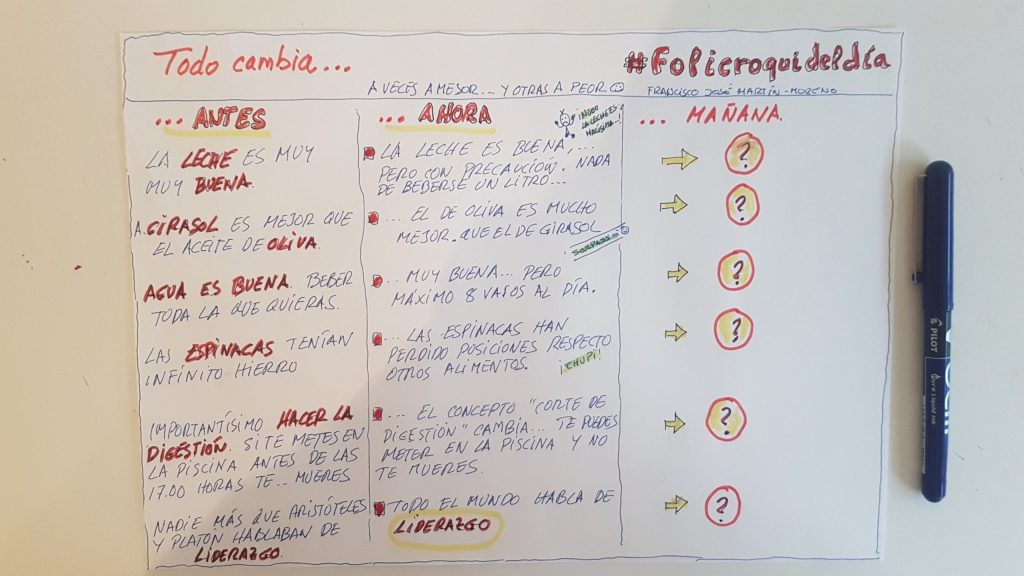 Todo cambia...
#Folicroquideldía
A VECES A MEJOR... Y OTRAS A PEOR
FRANCISCO JOSÉ MARTÍN-MORENO
... ANTES
LA LECHE ES MUY
MUY BUENA.
A.GIRASOL ES MEJOR QUE
EL ACEITE DE OLIVA.
AGUA ES BUENA. BEBER
TODA LA QUE QUIERAS.
LAS ESPINACAS TENÍAN
INFINITO HIERRO
IMPORTANTÍSIMO HACER LA
DIGESTIÓN. SI TE METES EN
LA PISCINA ANTES DE LAS
17.00 HORAS TE.. MUERES
NADIE MÁS QUE ARISTÓTELES
Y PLATÓN HABLABAN DE
LIDERAZGO.
... AHORA
LA LECHE ES
MALÍSIMA..!
LA LECHE ES BUENA,...
PERO CON PRECAUCIÓN. NADA
DE BEBERSE UN LITRO...
... EL DE OLIVA ES MUCHO
MEJOR. QUE EL DE GIRASOL
SORPASSO
... MUY BUENA... PERO
MÁXIMO 8 VASOS AL DÍA.
... LAS ESPINACAS HAN
PERDIDO POSICIONES RESPECTO
OTROS ALIMENTOS.
¡CHUPI!
... EL CONCEPTO "CORTE DE
DIGESTIÓN" CAMBIA... TE PUEDES
METER EN LA PISCINA Y NO
TE MUERES.
TODO EL MUNDO HABLA DE
LIDERAZGO
... MAÑANA.
?
?
?
?
?
?
PILOT